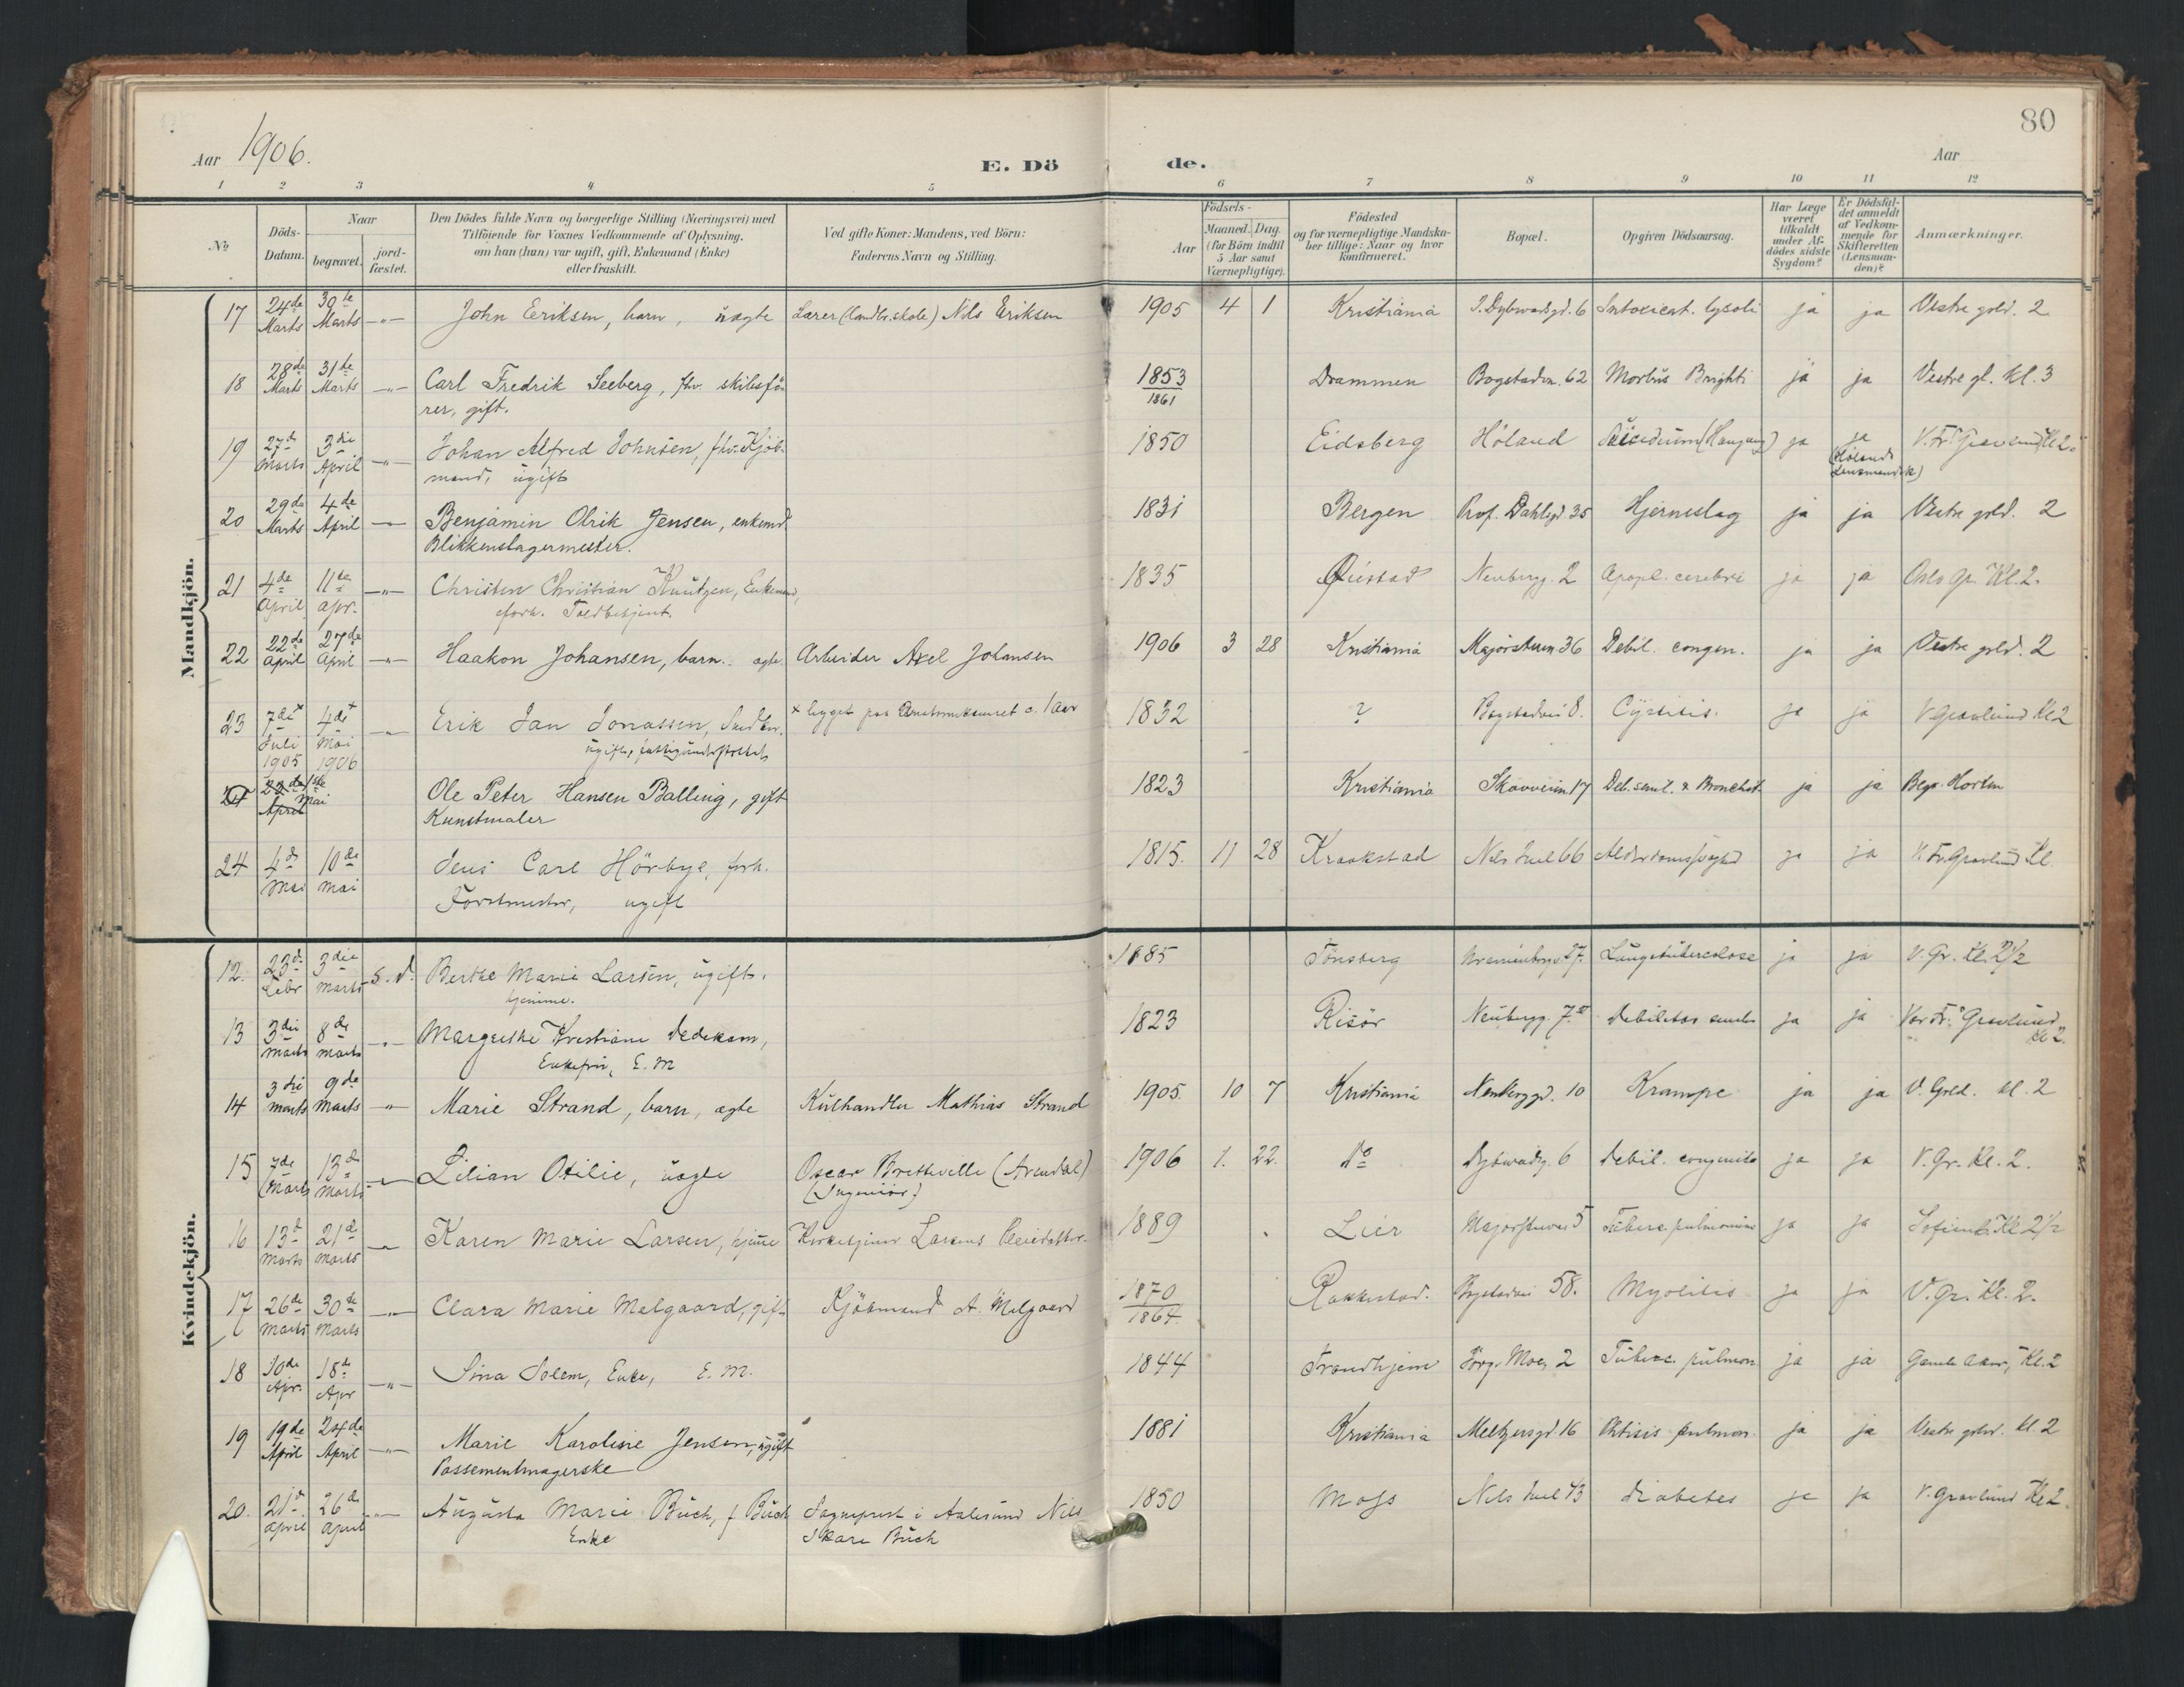 80
Aar 1906.
E. Dö de.
Aar
1 2 3 4 5 6 7 8 9 10 11 12
No
Döds-Datum.
Naar
begravet.
jord-fæstet.
Den Dödes fulde Navn og borgerlige Stilling (Næringsvei) med
Tilföiende for Voxnes Vedkommende af Oplysning,
om han (hun) var ugift, gift, Enkemand (Enke)
eller fraskilt.
Ved gifte Koner: Mandens, ved Börn:
Faderens Navn og Stilling.
Födsels-
Aar
Maaned. Dag.
(for Börn indtil
5 Aar samt
Værnepligtige).
Födested
og for værnepligtige Mandska-
ber tillige: Naar og hvor
konfirmeret.
Bopæl.
Opgiven Dödsaarsag.
Har Læge
været
tilkaldt
under Af-
dödes sidste
Sygdom?
Er Dödsfal-
det anmeldt
af Vedkom-
mende for
Skifteretten
(Lensman-
den)?
Anmærkninger.
Mandkjön.
17 24de Marts 30te Marts -"- John Eriksen, barn, uægte Lærer (landbr.skole) Nils Eriksen 1905 4 1 Kristiania J. Dybwadsgd. 6 Intoxicat. lysoli ja ja Vestre grld. 2
18 28de Marts 31te Marts -"- Carl Fredrik Seeberg, fhv. skibsfö-
rer, gift. 1853
1861 Drammen Bogstadvn. 62 Morbus Brighti ja ja Vestre gl. Kl. 3
19 27de Marts 3die April -"- Johan Alfred Johnsen, fhv. Kjöb-
mand, ugift 1850 Eidsberg Höland Suicidium (Hængng) ja ja
(Hölands
Lensmandsk) V. Fr. Gravlund Kl 2.
20 29de Marts 4de April -"- Benjamin Olrik Jensen, enkemd.
Blikkenslagermester. 1831 Bergen Prof. Dahlsgd. 35 Hjerneslag ja ja Vestre grld. 2
21 4de April 11te Apr. -"- Christen Christian Knutzen, Enkemand,
forh. Toldbetjent. 1835 Neuberg. 2 Apopl. cerebri ja ja Oslo Gr. Kl. 2.
22 22de April 27de April -"- Haakon Johansen, barn. ægte Arbeider Axel Johansen 1906 3 28 Kristiania Majorstuen 36 Debil. congen. ja ja Vestre grld. 2
23 7de+ Juli 1905 4de+ Mai 1906 -"- Erik Jan Jonassen,
ugift, fattigunderstöttet + ligget paa c. 1 aar 1832 ? Bogstadvei 8. ja ja V. Gravlund Kl 2
24 April 1ste Mai Ole Peter Hansen Balling, gift
Kunstmaler 1823 Kristiania Skovveien 17 Deb. senil. & Bronchit. ja ja Begr. Horten
24 4de Mai 10de Mai Jens Carl Hörbye, forh.
Forstmester, ugift 1815. 11 28 Kraakstad Nils Juel 66 Alderdomssvaghed ja ja V. Fr. Gravlund Kl.
Kvindekjön.
12. 23de Febr 3die Marts S. d. Berthe Marie Larsen, ugift.
hjemme. 1885 Tönsberg Lungetuberculose ja ja V. Gr. Kl. 2 1/2
13 3die Marts 8de Marts -"- Margrethe Kristiane Dedekam,
Enkefru, E. M 1823 Risör Neubergg. 7 Debilitas senilis ja ja Vor Fr. Gravlund
Kl 2.
14 3die Marts 9de Marts -"- Marie Strand, barn, ægte Kulhandler Mathias Strand 1905. 10 7 Kristiania Neuberggd. 10 Krampe ja ja V. Grld. kl. 2
15 7de Marts 13de Marts -"- Lilian Otilie, uægte Oscar Bretteville (Arendal)
(Ingeniör) 1906 1. 22. Do Dybwadg. 6 Debil. congenita ja ja V. Gr. Kl. 2.
16 13de Marts 21de Marts -"- Karen Marie Larsen, hjemme Kirketjener Larsens 1889 Lier Majorstuvei 5 Tuberc. pulmonum ja ja Sofienb. Kl 2 1/2
17 26de Marts 30te Marts -"- Clara Marie Melgaard, gift Kjöbmand A. Melgaard 1870
1864. Rakkestad. Bogstadvei 58. Myelitis ja ja V. Gr. Kl. 2.
18 10de Apr. 18de Apr -"- Sina Solem, Enke, E. M. 1844 Trondhjem Jörg. Moes 2 Tuberc. pulmon. ja ja Gamle Aker, Kl. 2
19 19de April 24de April -"- Marie Karoline Jensen, ugift
Possementmagerske 1881 Kristiania Meltzersgd. 16 Phtisis pulmon. ja ja Vestre grlnd. kl. 2
20. 21de April 26de April -"- Augusta Marie Buch, f. Buch
Enke Sogneprest i Aalesund Nils
Skare Buch 1850 Moss Nils Juel 43 Diabetes ja ja V. Gravlund Kl 2.